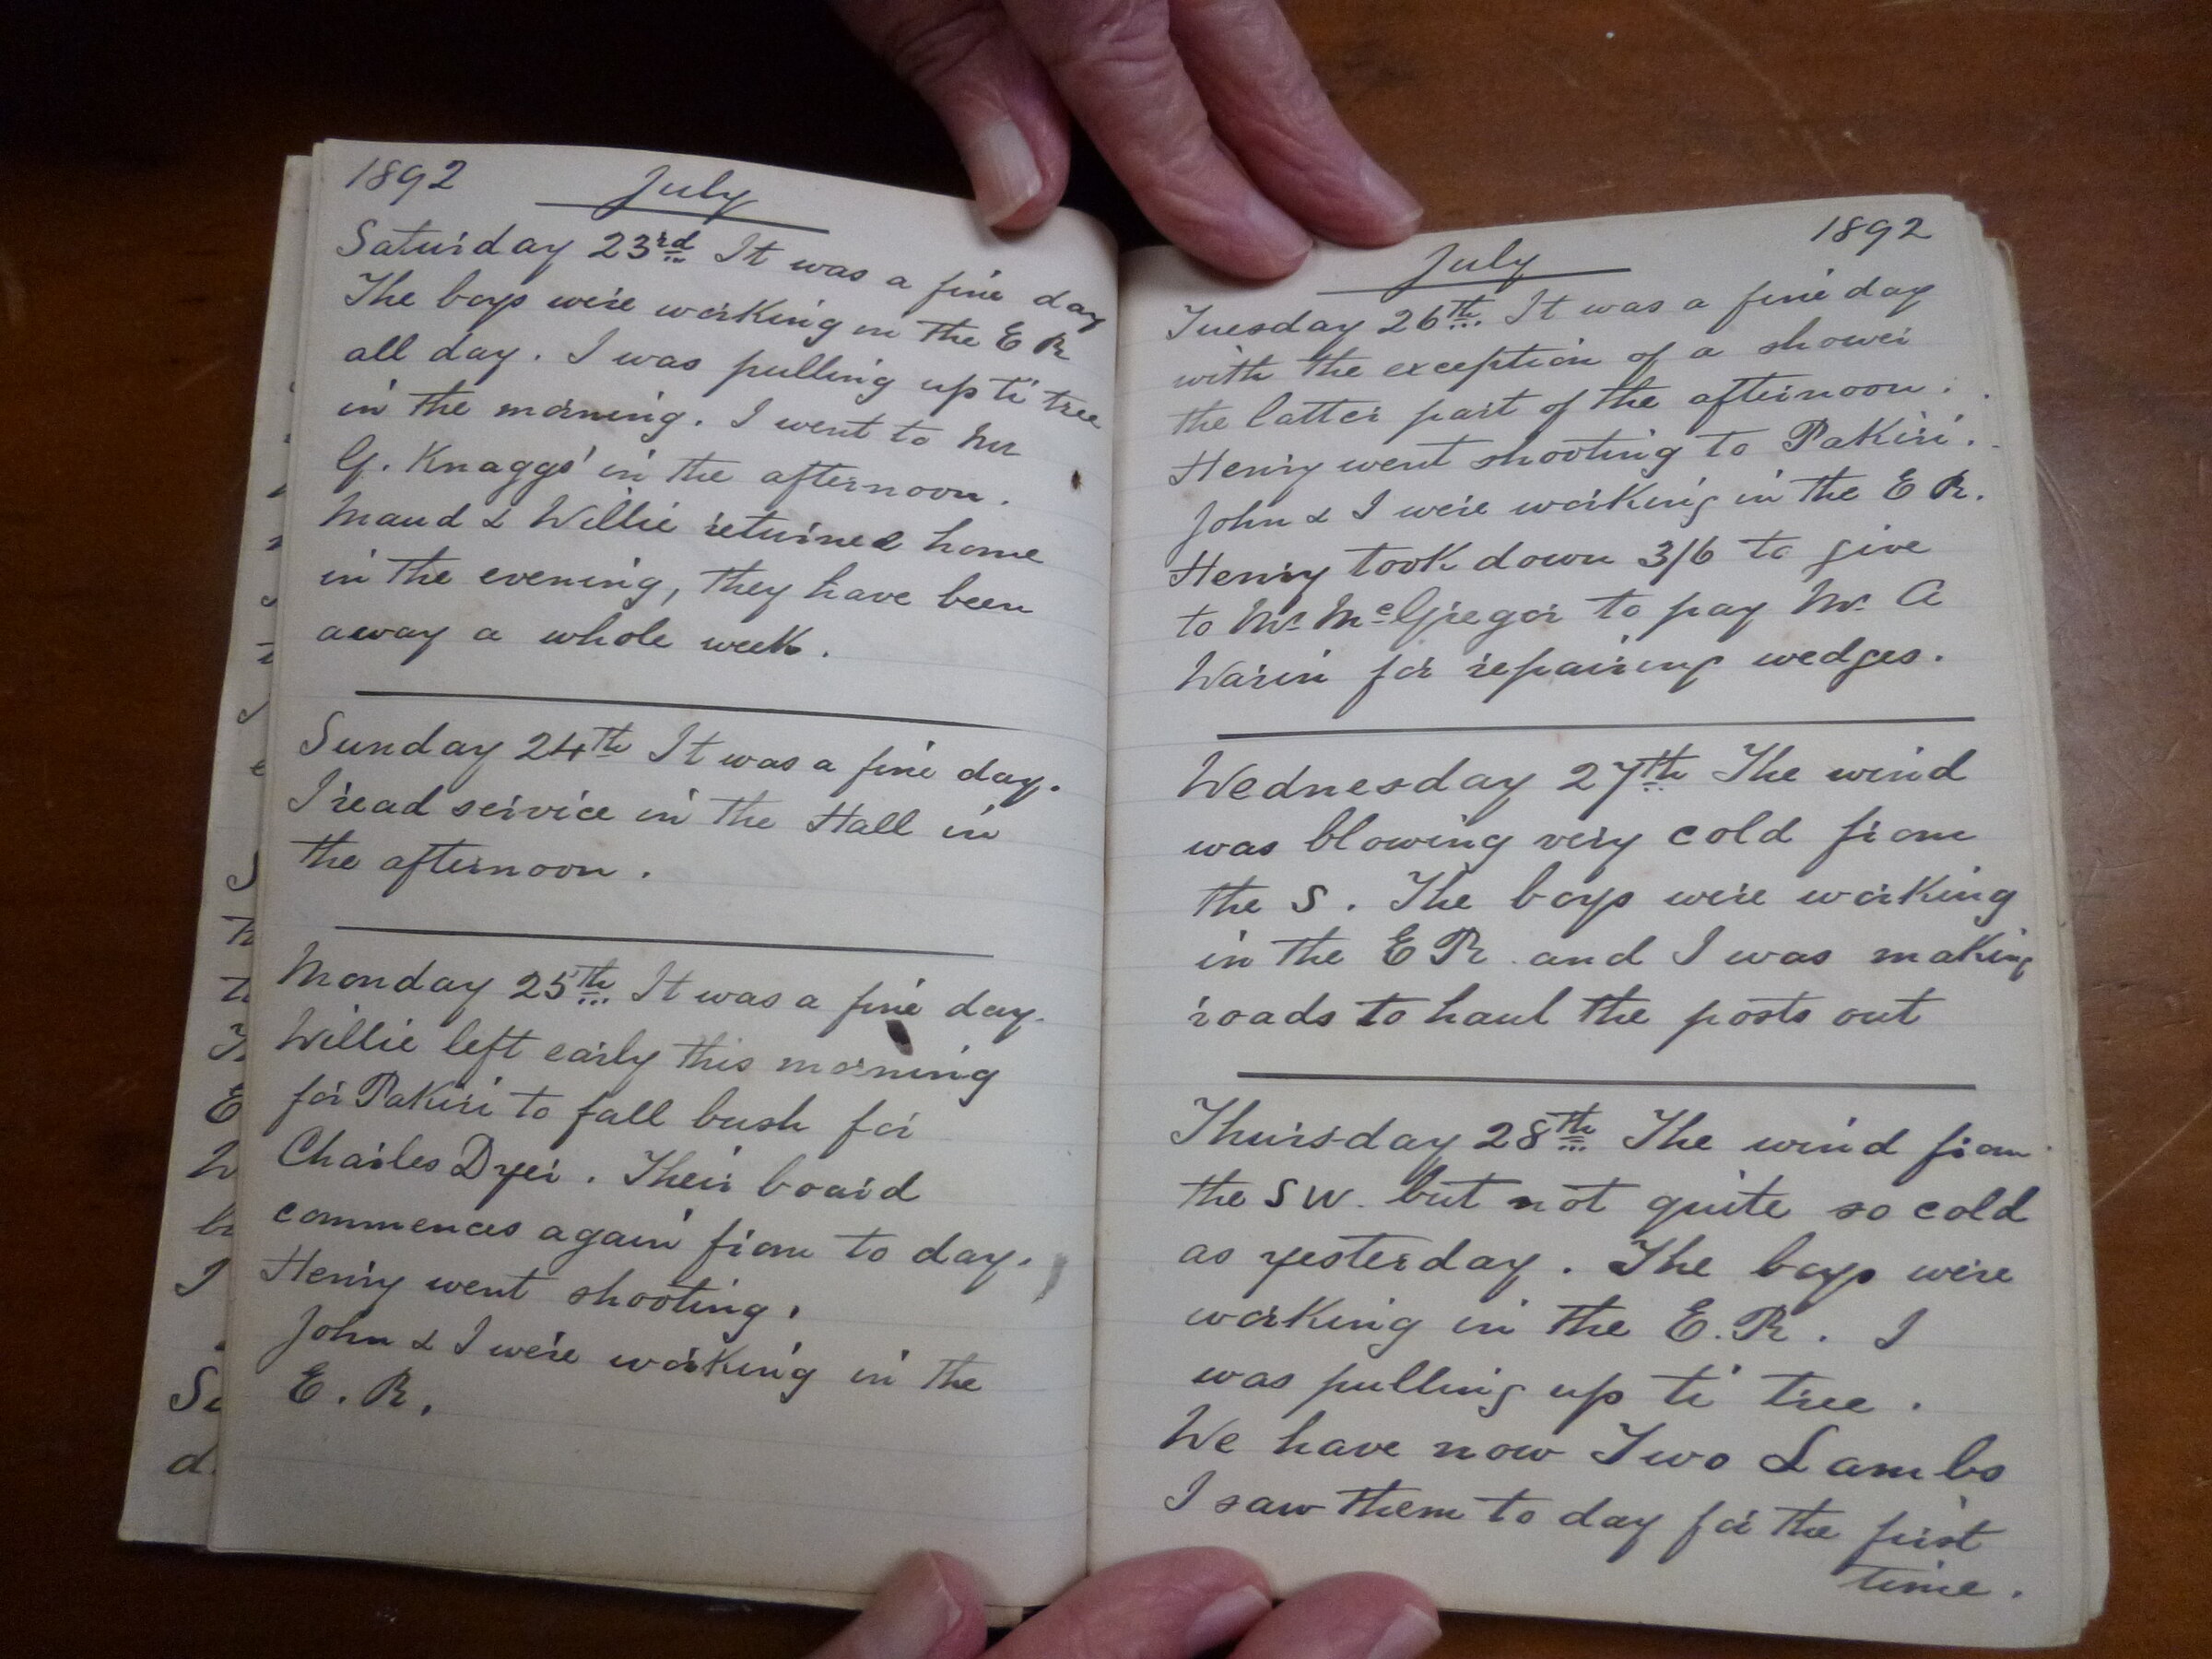 1892 July
Saturday 23rd It was a fine day
The boys were working in the E R
all day. I was pulling up ti tree
in the morning. I went to Mr
G. Knaggs' in the afternoon.
Maud & Willie returned home
in the evening, they have been
away a whole week.
Sunday 24th It was a fine day.
I read service in the Hall in
the afternoon.
Monday 25th It was a fine day.
Willie left early this morning
for Pakiri to fall bush for
Charles Dyer. Their board
commences again from to day.
Henry went shooting.
John & I were working in the
E. R.
July 1892
Tuesday 26th. It was a fine day
with the exception of a shower
the latter part of the afternoon.
Henry went shooting to Pakiri.
John & I were working in the E R.
Henry took down 3/6 to give
to Mr McGregor to pay Mr A
Warin for repairing wedges.
Wednesday 27th The wind
was blowing very cold from
the S. The boys were working
in the E R and I was making
roads to haul the posts out
Thursday 28th The wind from
the SW. but not quite so cold
as yesterday. The boys were
working in the E. R. I
was pulling up ti tree.
We have now Two Lambs
I saw them to day for the first
time.